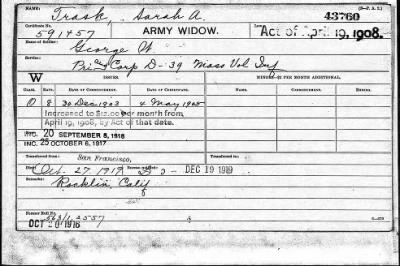 NAME: Trask, Sarah A. (3—P. A. I.)
43760
Certificate No. 591457 ARMY WIDOW. Act of April 19, 1908.
Name of Soldier: George W
Service: Corp D-39 Mass Vol Inf
W ISSUES. MINORS—$2 PER MONTH ADDITIONAL.
CLASS. RATE. DATE OF COMMENCEMENT. DATE OF CERTIFICATE. RATE. DATE OF COMMENCEMENT. DATE OF CERTIFICATE.
O 8 30 Dec 1903 4 May 1905
Increased to $12.00 per month from
April 19, 1908, by Act of that date.
INC. 20 SEPTEMBER 8, 1916
INC. 25 OCTOBER 6, 1917
Transferred from San Francisco,
Oct. 27 1919 DEC 19 1919
Remarks: Rocklin, Calif
Former Roll No.
OCT 20 1916